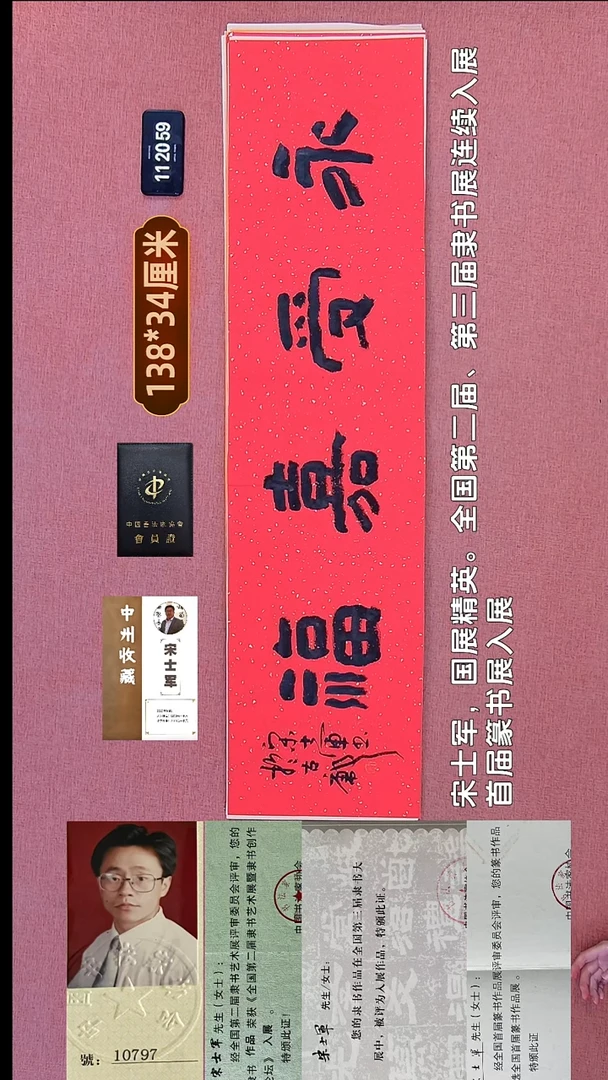 11 20 59
138*34厘米
會員證
宋士軍
永受嘉福
宋士軍書
於古鄭
宋士军，国展精英。全国第二届、第三届隶书展连续入展
首届篆书展入展
號： 10797
宋士军 先生（女士）：
经全国第二届隶书艺术展评审委员会评审，您的
隶书 作品 荣获《全国第二届隶书艺术展暨隶书创作
论坛》入展 。
特颁此证！
宋士軍 先生/女士：
您的隶书作品在全国第三届隶书大
展中，被评为入展作品，特颁此证。
士軍 先生（女士）：
经全国首届篆书作品展评审委员会评审，您的篆书作品，
选全国首届篆书作品展。
特颁此证